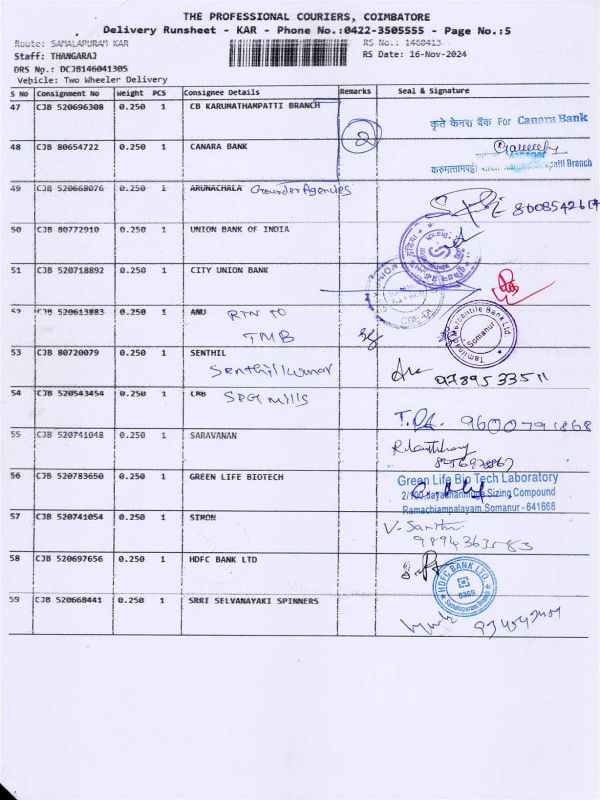 THE PROFESSIONAL COURIERS, COIMBATORE
Delivery Runsheet - KAR - Phone No.:0422-3505555 - Page No.:5
Route: SAMALAPURAM KAR RS No.: 1460413
Staff: THANGARAJ RS Date: 16-Nov-2024
DRS No.: DCJB146041305
Vehicle: Two Wheeler Delivery
S No Consignment No Weight PCS Consignee Details Remarks Seal & Signature
47 CJB 520696308 0.250 1 CB KARUMATHAMPATTI BRANCH
कृते केनरा बैंक For Canara Bank
2
48 CJB 80654722 0.250 1 CANARA BANK
Manager
करुमत्तामपट्टी Branch
49 CJB 520668076 0.250 1 ARUNACHALA Grounder Agencies
50 CJB 80772910 0.250 1 UNION BANK OF INDIA
51 CJB 520718892 0.250 1 CITY UNION BANK
52 CJB 520613883 0.250 1 ANU RTN TO
TMB
Tamilnad Mercantile Bank Ltd
Somanur
53 CJB 80720079 0.250 1 SENTHIL
Senthil Kumar
9789533511
54 CJB 520543454 0.250 1 CMB SPG Mills
9600791868
55 CJB 520741048 0.250 1 SARAVANAN
56 CJB 520783650 0.250 1 GREEN LIFE BIOTECH
Green Life Bio Tech Laboratory
Sizing Compound
Ramachiampalayam, Somanur - 641668
57 CJB 520741054 0.250 1 SIMON
58 CJB 520697656 0.250 1 HDFC BANK LTD
HDFC BANK LTD
59 CJB 520668441 0.250 1 SRRI SELVANAYAKI SPINNERS